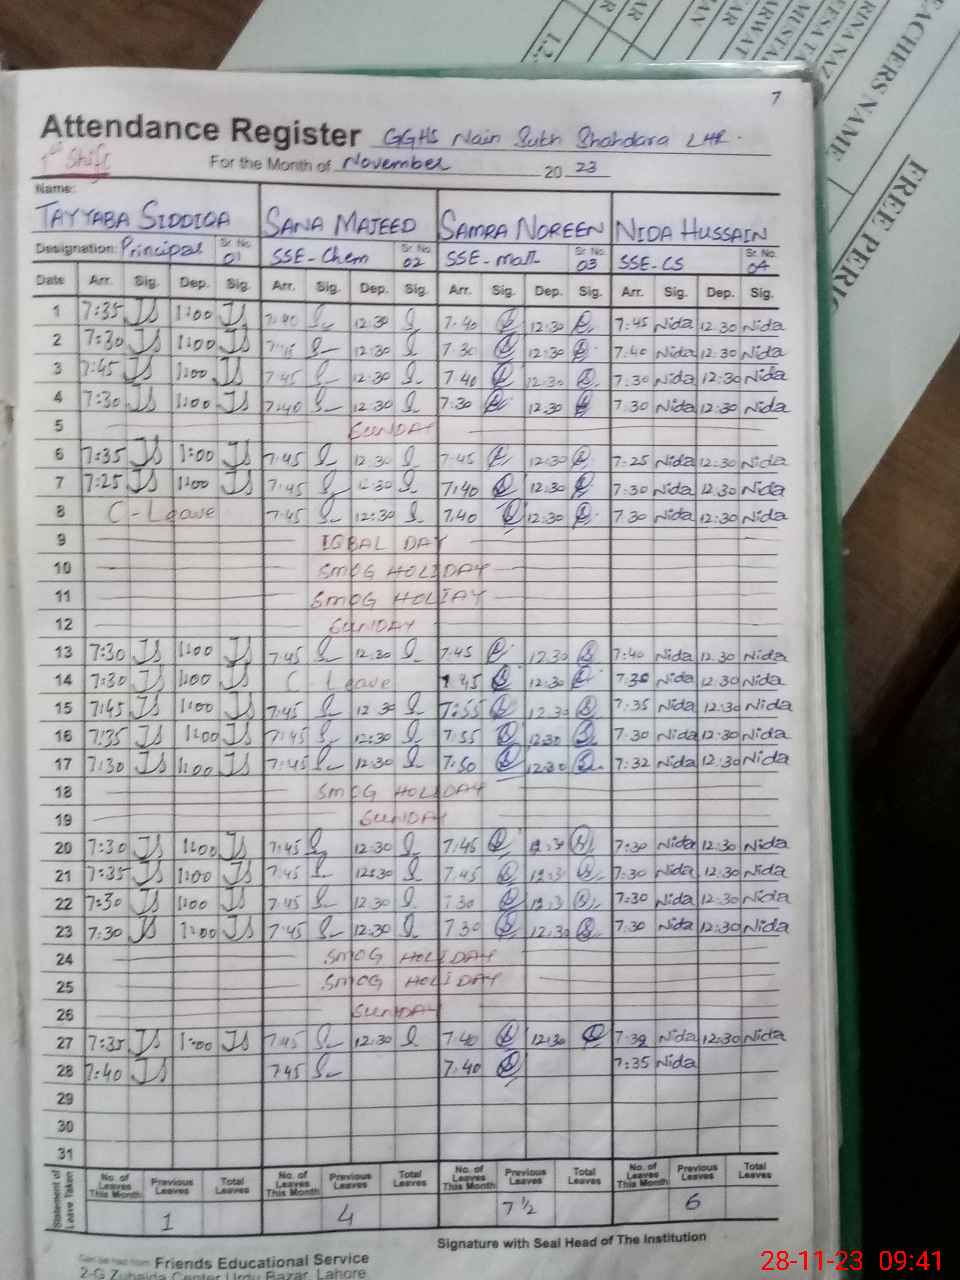 EACHERS NAME
RINA NAZ
FREE PERI
1.2.
7
Attendance Register GGHS Nain Sukh Shahdara LHR.
1st Shift
For the Month of November 20 23
Name:
TAYYABA SIDDIQA SANA MAJEED SAMRA NOREEN NIDA HUSSAIN
Designation: Principal Sr No. 01 SSE-Chem Sr. No. 02 SSE-math Sr. No. 03 SSE-CS Sr. No. 04
Date Arr. Sig. Dep. Sig. Arr. Sig. Dep. Sig. Arr. Sig. Dep. Sig. Arr. Sig. Dep. Sig.
1 7:35 1:00 7:40 12:30 7.40 12:30 7:45 Nida 12.30 Nida
2 7:30 1:00 7:45 12:30 7.30 12:30 7.40 Nida 12.30 Nida
3 7:45 1:00 7:45 12:30 7.40 12:30 7.30 Nida 12:30 Nida
4 7:30 1:00 7:40 12:30 7:30 12:30 7.30 Nida 12:30 Nida
5 SUNDAY
6 7:35 1:00 7:45 12.30 7.45 12:30 7:25 Nida 12:30 Nida
7 7:25 1:00 7:45 12:30 7:40 12:30 7:30 Nida 12.30 Nida
8 C-Leave 7:45 12:30 7.40 12:30 7.30 Nida 12:30 Nida
9 IQBAL DAY
10 SMOG HOLIDAY
11 SMOG HOLIAY
12 SUNDAY
13 7:30 1:00 7:45 12.30 7.45 12.30 7:40 Nida 12.30 Nida
14 7:30 1:00 C Leave 7.45 12:30 7.30 Nida 12.30 Nida
15 7:45 1:00 7:45 12:30 7:55 12.30 7.35 Nida 12:30 Nida
16 7:35 1:00 7:45 12:30 7.55 12:30 7.30 Nida 12:30 Nida
17 7:30 1:00 7:45 12:30 7.50 12:30 7:32 Nida 12:30 Nida
18 SMOG HOLIDAY
19 SUNDAY
20 7:30 1:00 7:45 12:30 7.45 7:30 Nida 12.30 Nida
21 7:35 1:00 7:45 12:30 7.45 7:30 Nida 12.30 Nida
22 7:30 1:00 7:45 12.30 7:30 Nida 12.30 Nida
23 7:30 1:00 7:45 12:30 7.30 12.30 7.30 Nida 12:30 Nida
24 SMOG HOLIDAY
25 SMOG HOLIDAY
26 SUNDAY
27 7:35 1:00 7:45 12:30 7.40 12:30 Nida 12.30 Nida
28 7:40 7:45 7.40 7:35 Nida
29
30
31
Statement of Leave Taken No. of Leaves This Month Previous Leaves Total Leaves No. of Leaves This Month Previous Leaves Total Leaves No. of Leaves This Month Previous Leaves Total Leaves No. of Leaves This Month Previous Leaves Total Leaves
1 4 7 ½ 6
Signature with Seal Head of The Institution
Can be had from Friends Educational Service
2-G Zubaida Center Urdu Bazar, Lahore
28-11-23 09:41